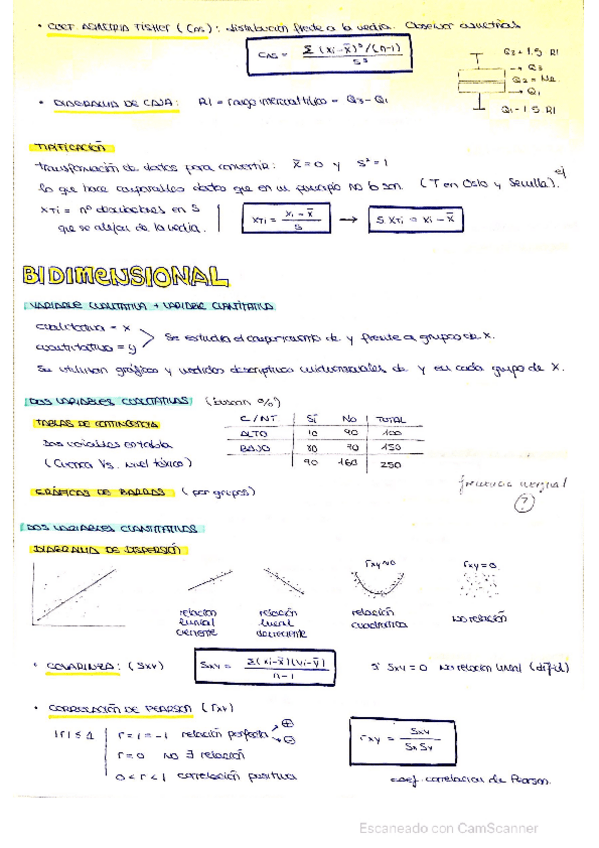 • COEF ASIMETRIA FISHER (CAS): distribución frente a la media. Observar asimetrías
CAS = Σ(xi-x̄)³/(n-1) / S³
Q3 + 1.5 RI
Q3
Q2 = Me
Q1
Q1 - 1.5 RI
• DIAGRAMA DE CAJA: RI = rango intercuartílico = Q3 - Q1
TIPIFICACIÓN
transformación de datos para convertir: x̄ = 0 y S² = 1
lo que hace comparables datos que en un principio no lo son. (T en Oslo y Sevilla). ej
XTi = nº desviaciones en S
que se alejan de la media.
XTi = xi - x̄ / S → S XTi = xi - x̄
BIDIMENSIONAL
VARIABLE CUALITATIVA + VARIABLE CUANTITATIVA
cualitativa = x
cuantitativa = y
Se estudia el comportamiento de y frente a grupos de x.
Se utilizan gráficos y medidas descriptivas unidimensionales de y en cada grupo de x.
DOS VARIABLES CUALITATIVAS (buscan %)
TABLAS DE CONTINGENCIA
Dos variables en tabla
(Cuenca Vs. nivel tóxico)
C/NT | SÍ | NO | TOTAL
ALTO | 10 | 90 | 100
BAJO | 80 | 70 | 150
90 | 160 | 250
GRÁFICAS DE BARRAS (por grupos)
frecuencia marginal
?
DOS VARIABLES CUANTITATIVAS
DIAGRAMA DE DISPERSIÓN
relación lineal creciente
relación lineal decreciente
rxy≈0
relación cuadrática
rxy=0
No relación
• COVARIANZA: (Sxy)
Sxy = Σ(xi-x̄)(yi-ȳ) / n-1
Si Sxy = 0 No relación lineal (difícil)
• CORRELACIÓN DE PEARSON (rxy)
|r| ≤ 1
r = 1 = -1 relación perfecta ⊕ ⊖
r = 0 NO ∃ relación
0 < r < 1 correlación positiva
rxy = Sxy / Sx Sy
coef. correlación de Pearson.
Escaneado con CamScanner